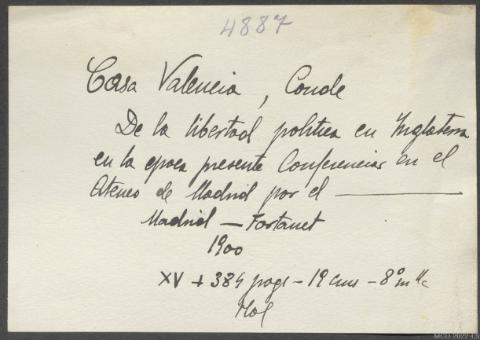 4887
Casa Valencia, Conde
De la libertad politica en Inglaterra
en la epoca presente Conferencias en el
Ateneo de Madrid por el ————
Madrid — Fortanet
1900
XV + 384 pags - 19 cms - 8º mlla
Hol